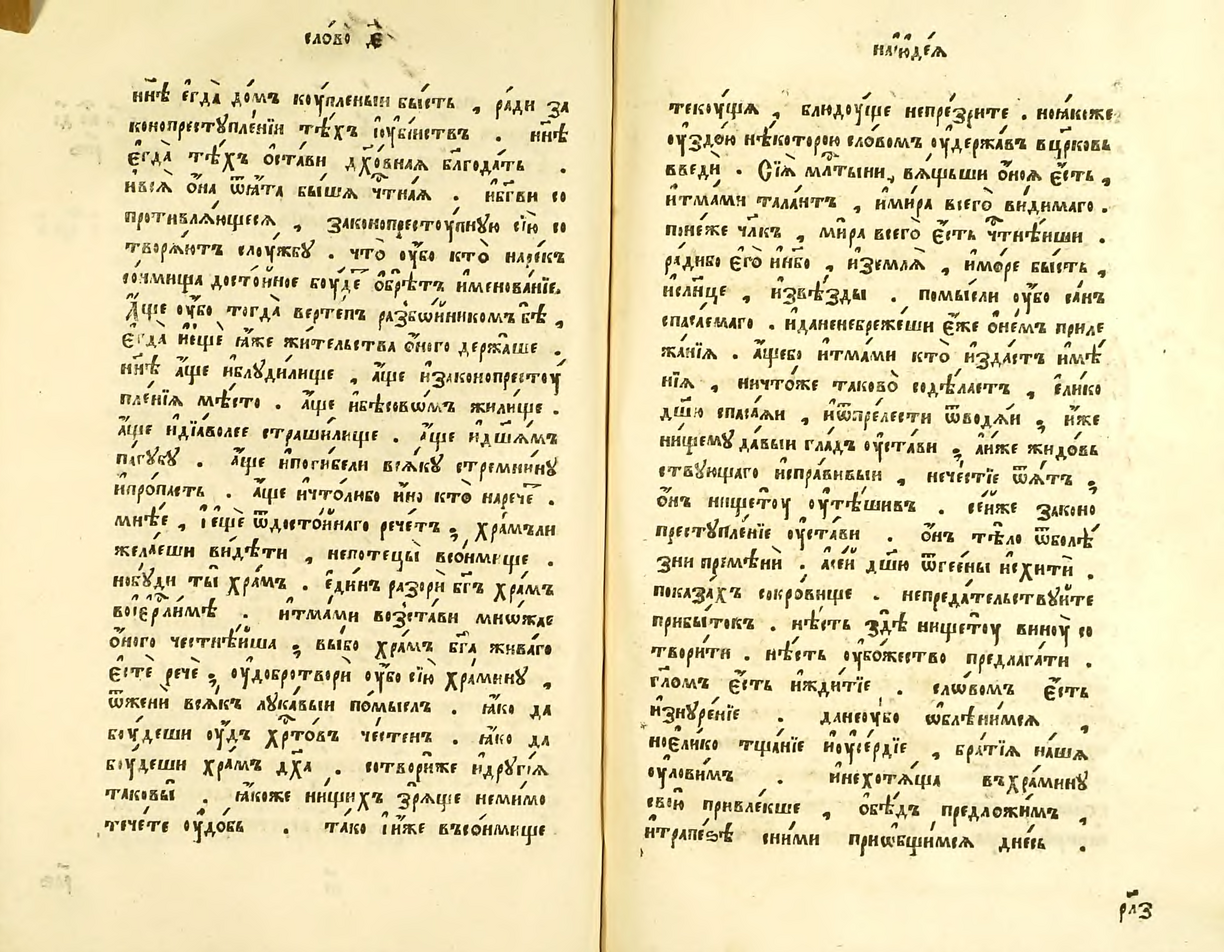 сло́во є҃
нн҃ѣ є҆гда̀ до́мъ коу́пленыи бы́сть , ра́ди за
конопрестꙋпле́нїи тѣ́хъ и҆оу҆бі́иствъ . нн҃ѣ
є҆гда̀ тѣ́хъ ѡ҆ста́ви дх҃о́внаѧ бл҃года́ть .
ивсѧ̀ ѻ҆на ѿѧ҆та бы́шѧ чⷭ҇тнаѧ . и҆бг҃ви со
противлѧ́ющесѧ , законопрестоу́пнꙋю сїю̀ со
творѧ́ютъ слоу́жбꙋ . что̀ оу҆̀бо кто̀ наре́къ
со́нмища досто́йное боу́деⷮ ѡ҆брѣ́тъ именова́нїе.
А҆́ще оу҆̀бо тогда̀ верте́пъ разбо́йникомъ бѣ̀ ,
є҆гда̀ и҆ещѐ ꙗ҆́же жи́тельства ѻ҆́ного держа́ше .
нн҃ѣ а҆́ще и҆блꙋди́лище , а҆́ще и҆законопрестоу
пле́нїѧ мѣ́сто . а҆́ще и҆бѣсо́вѡмъ жили́ще .
а҆́ще и҆дїа́волее страши́лище . а҆́ще и҆дш҃ѧ́мъ
па́гꙋбꙋ . а҆́ще и҆поги́бели всѧ́кꙋ стремни́нꙋ
и҆про́пасть . а҆́ще и҆что́либо и҆́но кто̀ нарече́ⷮ .
мнѣ́е , і҆ещѐ ѿдосто́йнаго рече́тъ ; хра́мъли
жела́еши ви́дѣти , непотецы̀ всо́нмище .
нобꙋ́ди ты̀ хра́мъ . є҆ди́нъ разорѝ бг҃ъ хра́мъ
воі҆ерⷭ҇ли́мѣ . и҆тма́ми возста́ви мно́жае
ѻ҆́ного честнѣ́йша ; выбо хра́мъ бг҃а жива́го
є҆стѐ речѐ ; оу҆добротворѝ оу҆̀бо сїю̀ хра́минꙋ ,
ѿженѝ всѧ́къ лꙋка́выи по́мыслъ . ꙗ҆́ко да
боу́деши оу҆́дъ хрⷭ҇то́въ че́стенъ . ꙗ҆́ко да
бꙋ́деши хра́мъ дх҃а . сотвори́же и҆дрꙋгі́ѧ
таковы̀ . ꙗ҆́коже ни́щихъ зрѧ́ще неми́мо
тече́те оу҆до́бь . та́ко і҆и҆́же въсо́нмище
наі҆юде́ѧ
текоу́щїѧ , блюдоу́ще непре́зрите . ноꙗ҆́коже
оу҆здо́ю нѣ́которою сло́вомъ оу҆держа́въ вцр҃ковь
введѝ . Сїѧ̀ млⷭ҇тыни , вѧ́щьши ѻ҆́ноѧ є҆́сть ,
и҆тма́ми тала́нтъ , и҆ми́ра всего̀ ви́димаго .
поне́же чл҃къ , ми́ра всего̀ є҆́сть чⷭ҇тнѣ́иши .
ра́дибо є҆го̀ и҆нб҃о , и҆землѧ̀ , и҆мо́ре бы́сть ,
и҆сл҃нце , и҆звѣ́зды . помы́сли оу҆̀бо са́нъ
спаса́емаго . и҆даненебреже́ши є҆́же ѻ҆не́мъ приле
жа́нїѧ . а҆́щебо и҆тма́ми кто̀ и҆зда́стъ и҆мѣ́
нїѧ , ничто́же таково̀ содѣ́ластъ , є҆ли́ко
дш҃ю спаса́ѧи , и҆ѿпре́лести ѿводѧ́и ; и҆́же
ни́щемꙋ давы́и гла́дъ оу҆ста́ви ; а҆и҆́же жидо́въ
ствꙋющаго и҆спра́вивыи , нече́стїе ѿѧ́тъ ;
ѻ҆́нъ нищетоу̀ оу҆тѣ́шивъ . се́иже законо
престꙋпле́нїе оу҆ста́ви . ѻ҆нъ тѣ́ло ѿболѣ́
зни премѣнѝ . а҆се́и дш҃ю ѿгее́ны и҆схитѝ .
показа́хъ сокро́вище . непреда́тельствꙋите
прибы́токъ . нѣ́сть здѣ̀ нищетоу̀ виноу̀ со
твори́ти . нѣ́сть оу҆бо́жество предлага́ти .
гл҃омъ є҆́сть и҆жди́тїе . сло́вомъ є҆́сть
и҆знꙋре́нїе . данеоу҆́бо ѡ҆блѣни́мсѧ ,
ноє҆ли́ко тща́нїе и҆оу҆се́рдїе , бра́тїѧ на́шѧ
оу҆лови́мъ . и҆нехотѧ́ща въхра́минꙋ
свою̀ привле́кше , ѻ҆бѣ́дъ предложи́мъ ,
и҆трапе́зѣ сни́ми приѡ҆бщи́мсѧ дне́сь .
рл҃з